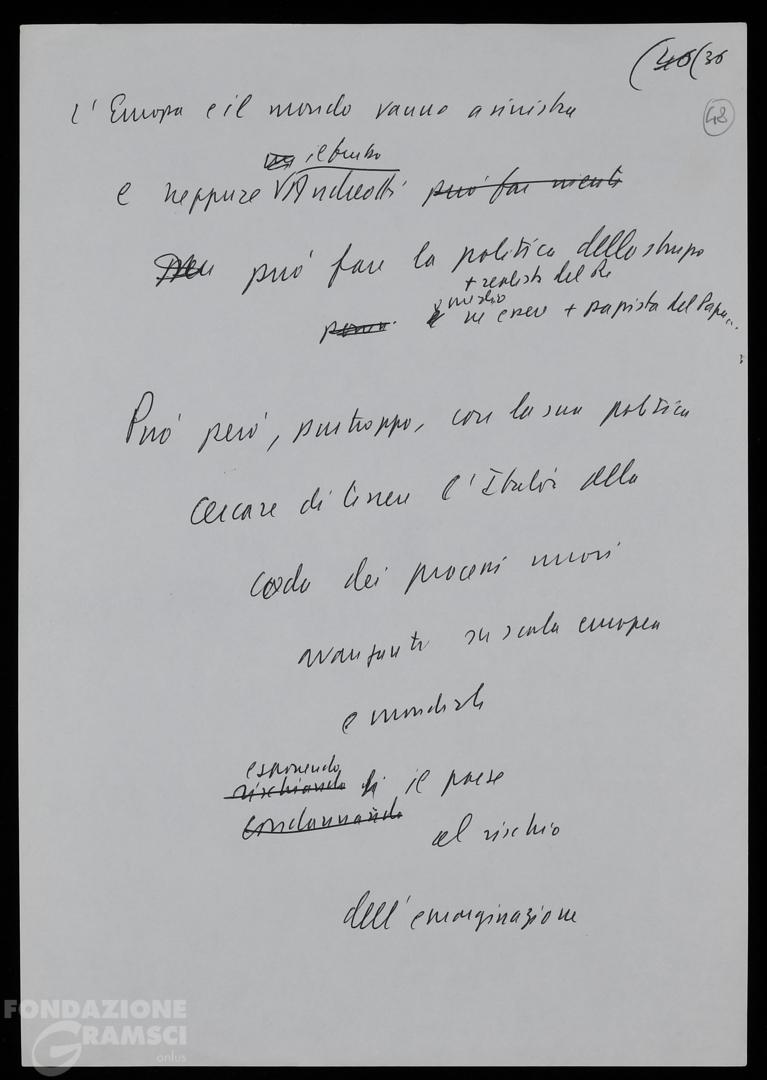 (46 (36
48
L'Europa e il mondo vanno a sinistra
il furbo
e neppure Andreotti può far niente
può fare la politica dello struzzo
+ realista del Re
meglio
essere + papista del Papa...
Può però, purtroppo, con la sua politica
cercare di tenere l'Italia alla
coda dei processi nuovi
avanzanti su scala europea
e mondiale
esponendo
rischiando di il paese
condannando
al rischio
dell'emarginazione
FONDAZIONE
GRAMSCI
onlus